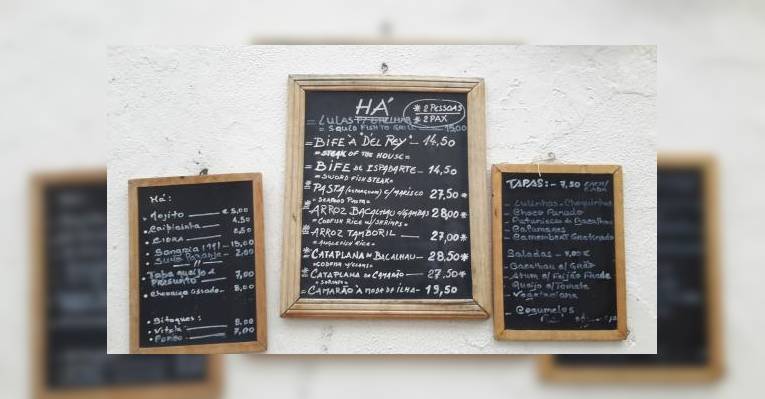 Há:
• Mojito — € 5,00
• Caipirinha — 4,50
• Cidra — 2,50
• Sangria 1 lt — 15,00
2,00
Taba queijo e
Presunto — 7,00
• Chouriço assado — 8,00
• Bitoques:
• Vitela — 8,00
• Porco — 7,00
HÁ
* 2 PESSOAS
* 2 PAX
= LULAS
= SQUID FISH TO GRILL 15,00
= BIFE À DEL REY — 14,50
= STEAK OF THE HOUSE =
= BIFE DE ESPADARTE — 14,50
= SWORD FISH STEAK =
PASTA C/ MARISCO 27,50 *
= SEAFOOD PASTA =
ARROZ BACALHAU C/GAMBAS 28,00 *
= CODFISH RICE W/SHRIMPS =
ARROZ TAMBORIL — 27,00 *
= ANGLEFISH RICE =
* CATAPLANA DE BACALHAU — 28,50 *
* CATAPLANA DE CAMARÃO — 27,50 *
= CAMARÃO À MODA DE ILHA — 19,50
TAPAS: — 7,50
— Choco Panado
— Pataniscas de Bacalhau
— Calamares
— Camembert Gratinado
Saladas —
— Bacalhau c/ Grão
— Atum c/ Feijão Frade
— Queijo c/ Tomate
— Vegetariana
— Cogumelos